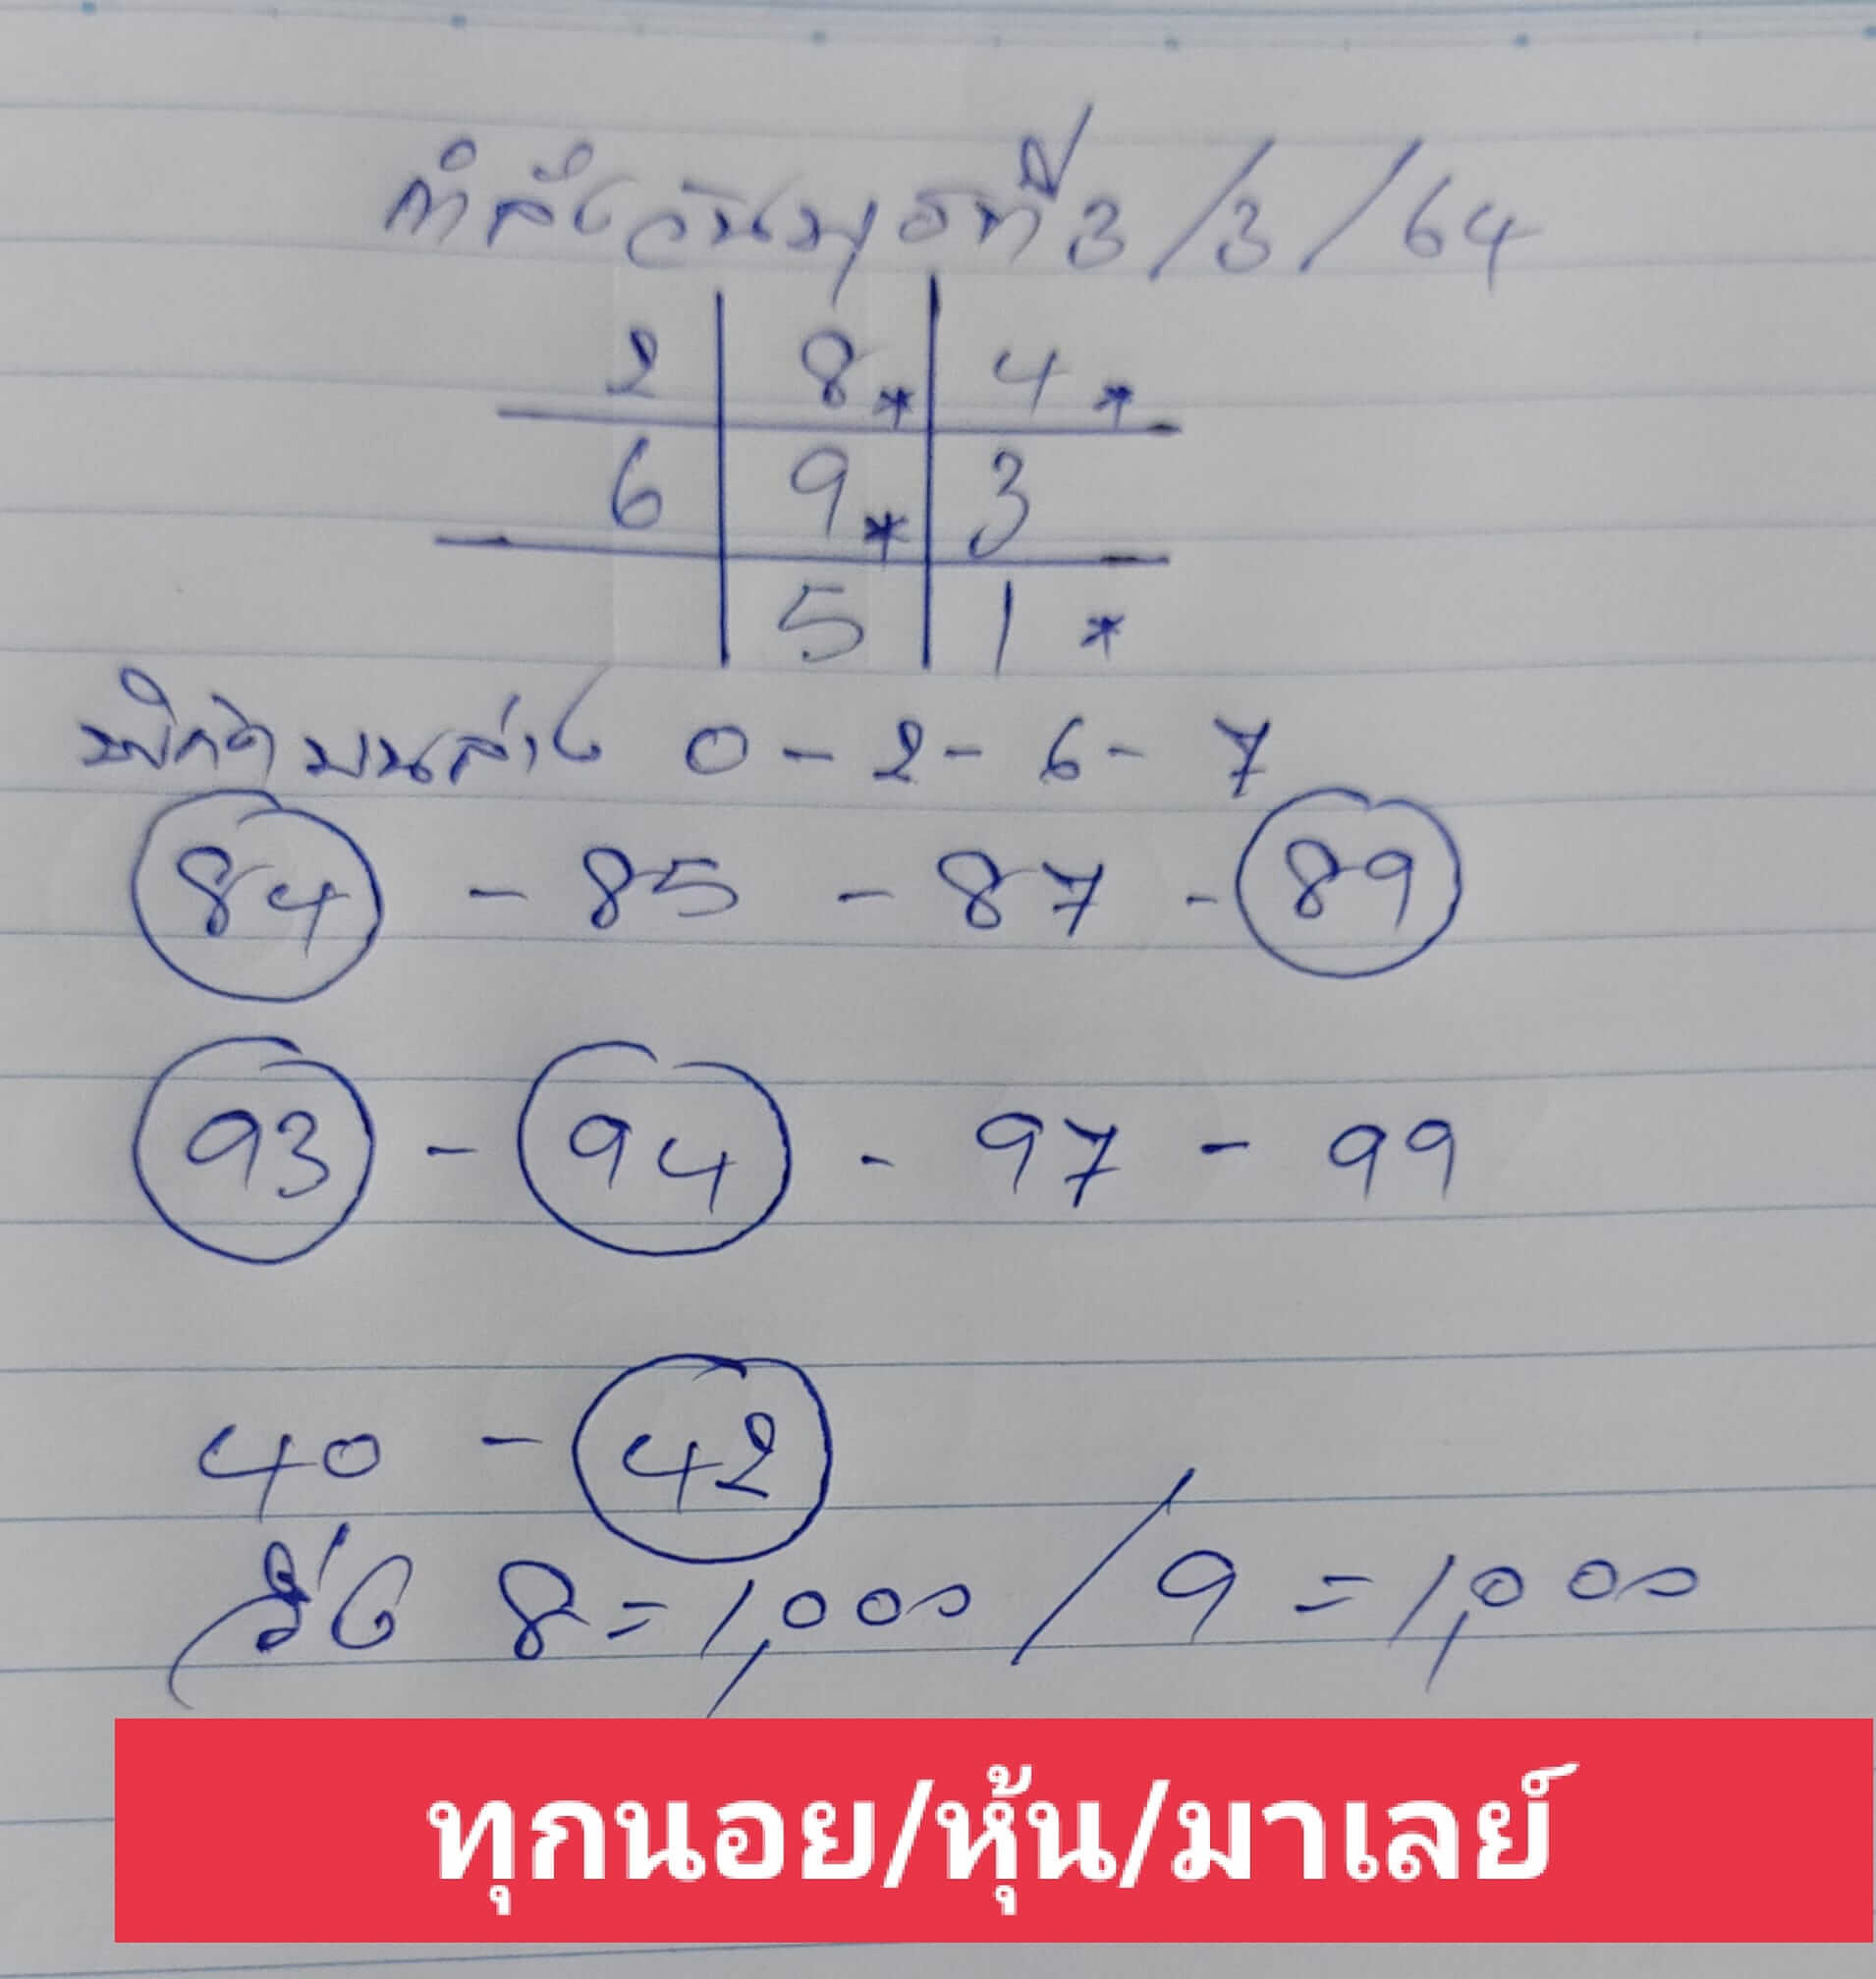 กำลังวันพุธที่ 3/3/64
2 8* 4*
6 9* 3
5 1*
พิกัด บนล่าง 0-2-6-7
84 - 85 - 87 - 89
93 - 94 - 97 - 99
40 - 42
วิ่ง 8=1,000/9=1,000
ทุกนอย/หุ้น/มาเลย์